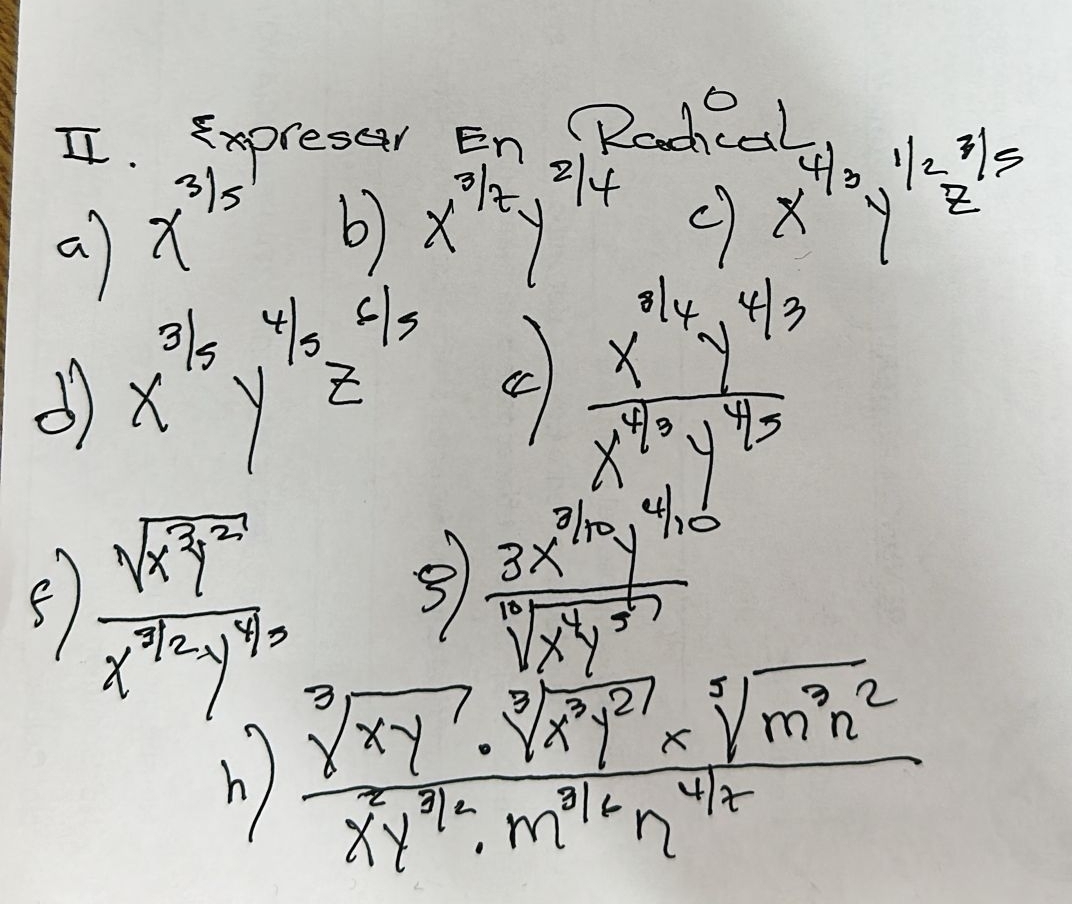 II. Expresar En Radical
a) x^3/5 b) x^3/7 y^2/4 c) x^4/3 y^1/2 z^3/5
d) x^3/5 y^4/5 z^6/5 e) (x^3/4 y^4/3)/(x^4/3 y^4/5)
f) √(x^3y^2)/(x^3/2 y^4/5) g) (3x^3/10 y^4/10)/(¹⁰√(x^4y^5))
h) (³√(xy) · ³√(x^3y^2) × ⁵√(m^3n^2))/(x^2y^3/2 · m^3/6 n^4/7)